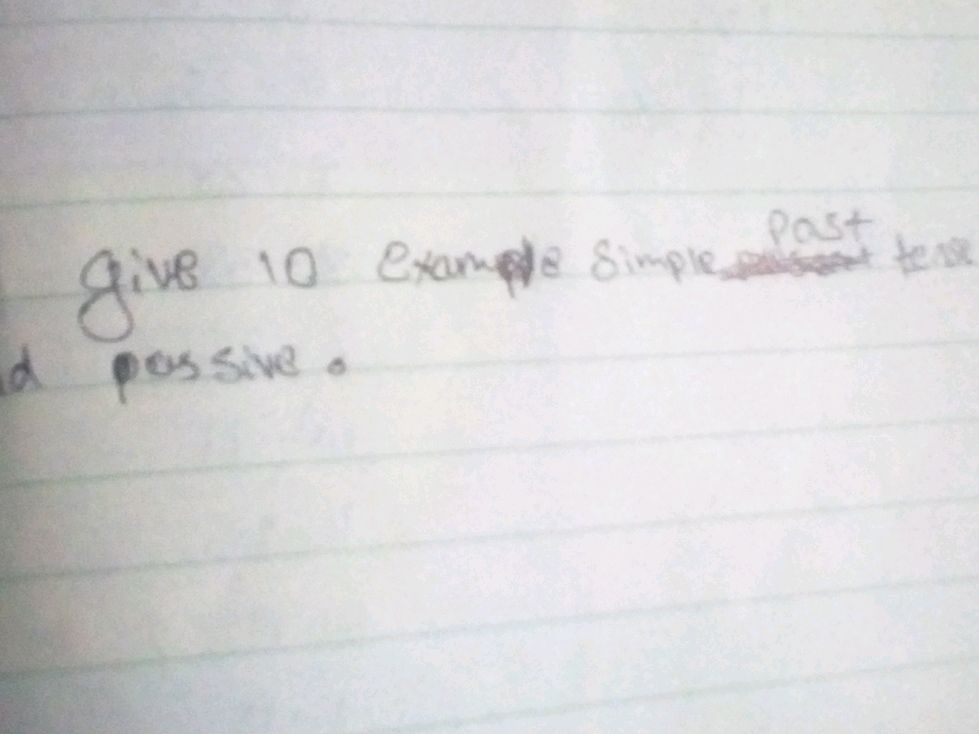 give 10 example simple past tense
d passive.